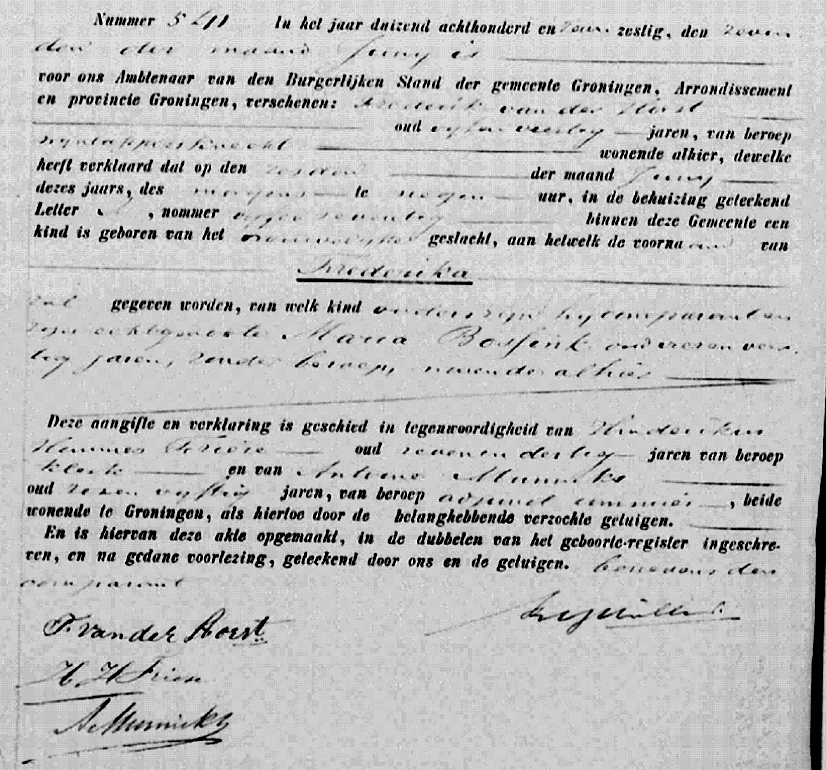 Nummer 511 In het jaar duizend achthonderd en zestig, den zeven
den der maand Juny is
voor ons Ambtenaar van den Burgerlijken Stand der gemeente Groningen, Arrondissement
en provincie Groningen, verschenen: Frederik van der Horst
oud vyfenveertig jaren, van beroep
wonende alhier, dewelke
heeft verklaard dat op den zesden der maand Juny
dezes jaars, des morgens te negen uur, in de behuizing geteekend
Letter , nommer binnen deze Gemeente een
kind is geboren van het vrouwelijke geslacht, aan hetwelk de voornaam van
Frederika
zal gegeven worden, van welk kind ouders zyn hy comparant en
zyne echtgenoote Maria Bossink oud
tig jaren, zonder beroep, wonende alhier
Deze aangifte en verklaring is geschied in tegenwoordigheid van Hinderikus
Hemmes oud zevenendertig jaren van beroep
klerk en van Antonie Munniks
oud zesenvyftig jaren, van beroep , beide
wonende te Groningen, als hiertoe door de belanghebbende verzochte getuigen.
En is hiervan deze akte opgemaakt, in de dubbelen van het geboorte-register ingeschre-
ven, en na gedane voorlezing, geteekend door ons en de getuigen. benevens den
comparant
F. van der Horst
A. Munniks